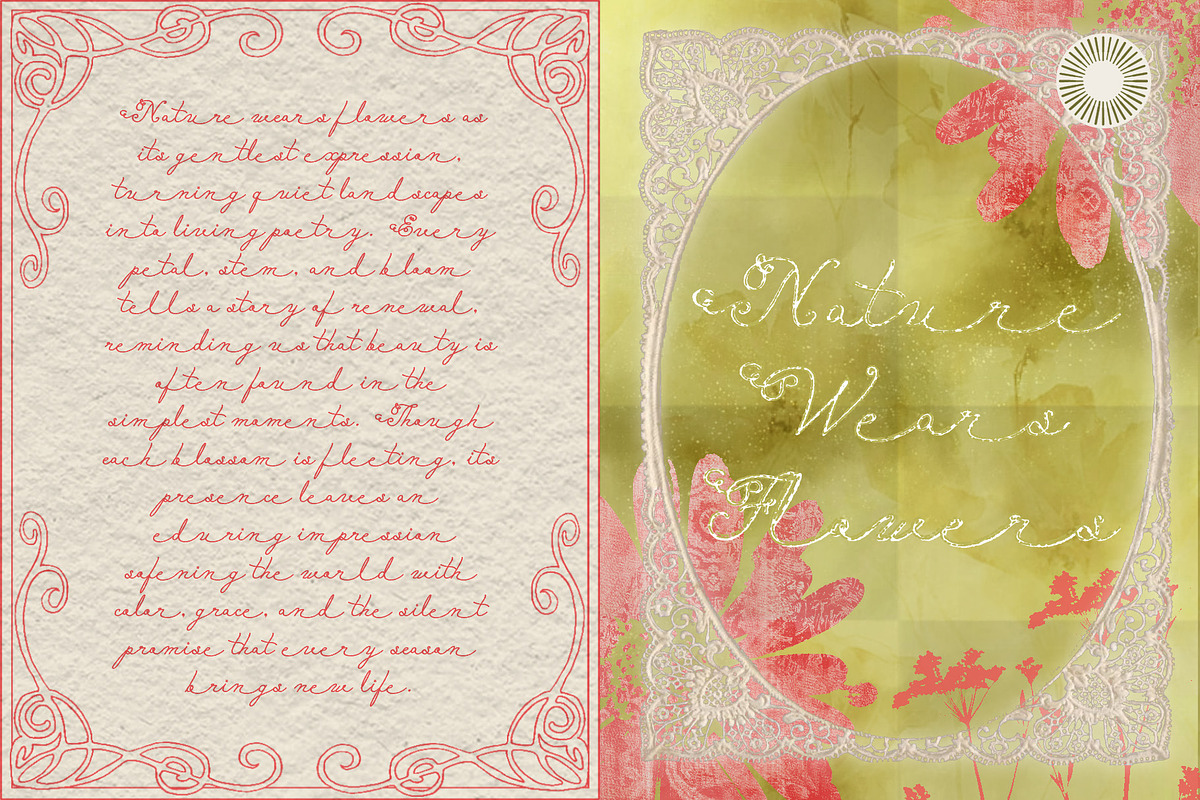 Nature wears flowers as
its gentlest expression,
turning quiet landscapes
into living poetry. Every
petal, stem, and bloom
tells a story of renewal,
reminding us that beauty is
often found in the
simplest moments. Though
each blossom is fleeting, its
presence leaves an
eduring impression
safening the world with
color, grace, and the silent
promise that every season
brings new life.
Nature
Wears
Flowers